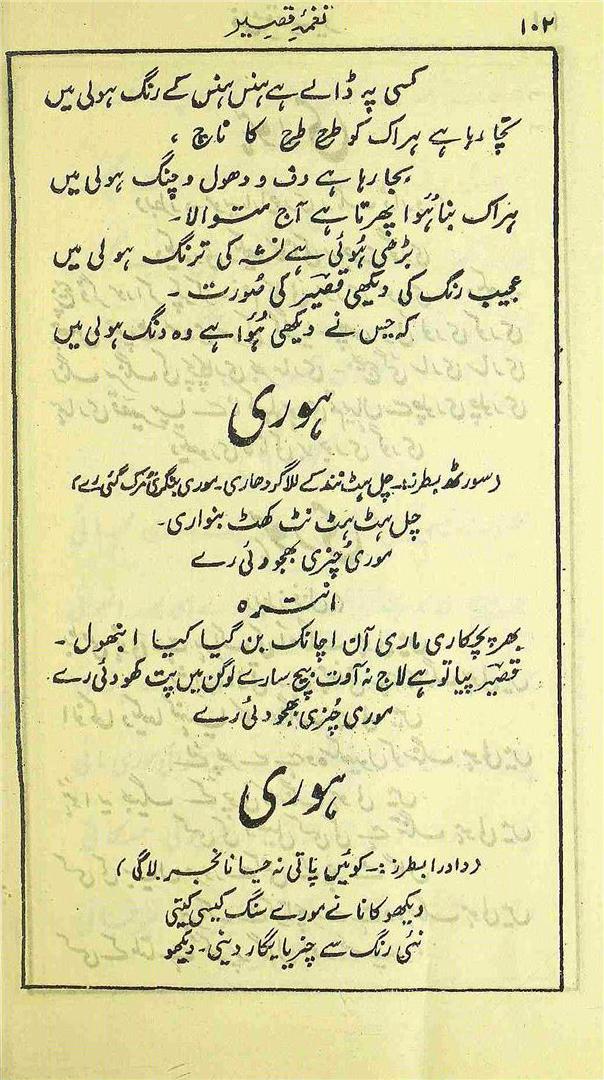 ۱۰۲
نغمۂ قیصر
کسی پہ ڈالے ہے ہنس ہنس کے رنگ ہولی میں
نچا رہا ہے ہراک کو طرح طرح کا ناچ ،
بجا رہا ہے دف و دھول و چنگ ہولی میں
ہراک بنا ہُوا پھرتا ہے آج متوالا۔
بڑھی ہُوئی ہے نشہ کی ترنگ ہولی میں
عجیب رنگ کی دیکھی قیصؔر کی صُورت ۔
کہ جس نے دیکھی ہُوا ہے وہ دنگ ہولی میں
ہوری
(سورٹھ بطرز :۔ چل ہٹ نند کے للا گردھاری۔ موری بنگری مُرک گئی رے)
چل ہٹ ہٹ نٹ کھٹ بنواری۔
موری چنری بھجو دئی رے
انترہ
بھر پچکاری ماری آن اچانک بن گیا کیا انبھول ۔
قیصؔر پیا تو ہے لاج نہ آوت بیچ سارے لوگن میں پت کھو دئی رے۔
موری چُنری بھجو دئی رے
ہوری
(دادرا بطرز :۔ کوئیں پاتی نہ حیا نا نجر لاگی)
دیکھو کانا نے مورے سنگ کیسی کیتی
نئی رنگ سے چنریا بگار دینی۔ دیکھو